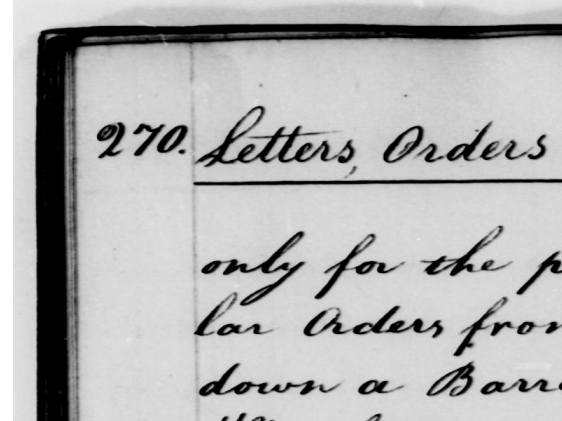 270. Letters, Orders
only for the p
lar Orders from
down a Barra